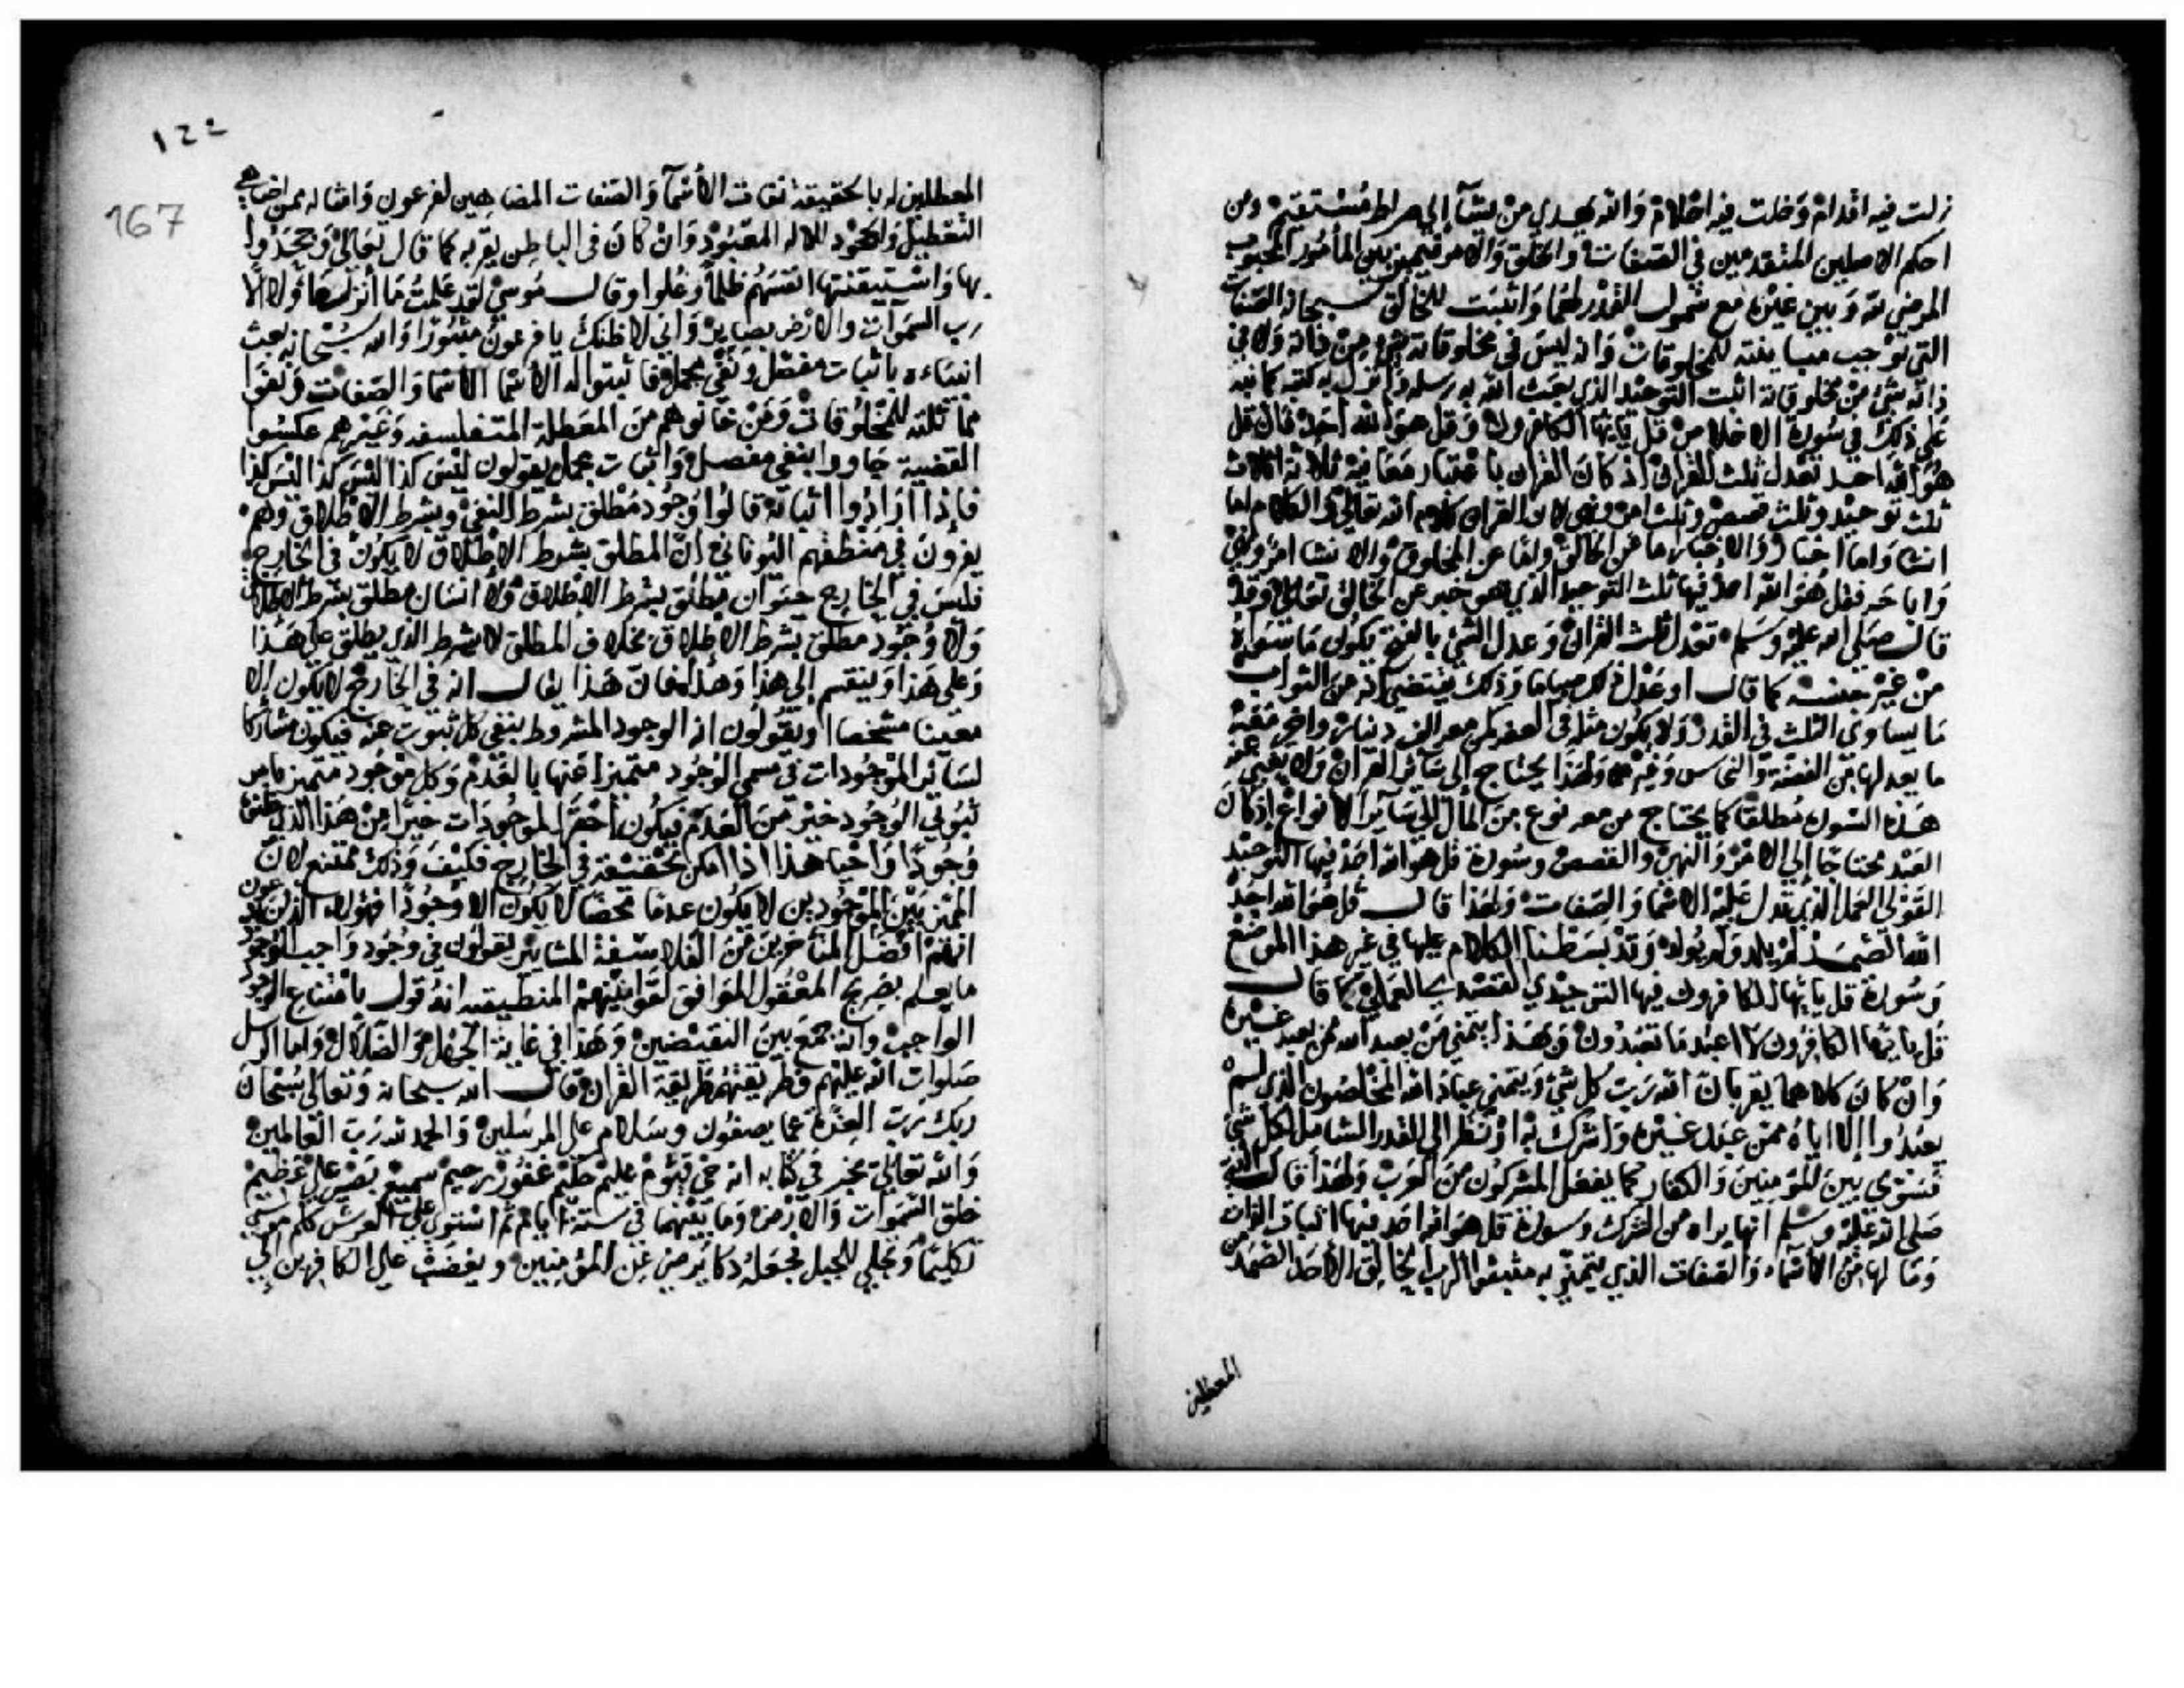 زلت فيه اقدام وضلت فيه احلام والله يهدي من يشآ إلى صراط مستقيم ومن
احكم الاصلين المتقدمين في الصفات والخلق والامر فيميز بين المأمور المحبوب
المرضي لله وبين غيره مع شمول القدر لهما واثبت للخالق سبحانه الصفات
التي توجب مباينته للمخلوقات وانه ليس في مخلوقاته شي من ذاته ولا في
ذاته شي من مخلوقاته اثبت التوحيد الذي بعث الله به رسله وانزل به كتبه كما نبه
على ذلك في سورة الاخلاص قل يايها الكافرون وقل هو الله احد فان قل
هو الله احد تعدل ثلث القران اذ كان القران باعتبار معانيه ثلاثة اثلاث
ثلث توحيد وثلث قصص وثلث امر ونهي لان القران كلام الله تعالى والكلام اما
انشا واما اخبار والاخبار اما عن الخالق واما عن المخلوق والانشا امر ونهي
واباحه فقل هو الله احد فيها ثلث التوحيد الذي هو خبر عن الخالق تعالى وقد
قال صلى الله عليه وسلم تعدل ثلث القران وعدل الشي بالفتح يكون ما سواه
من غير جنسه كما قال او عدل ذلك صياما وذلك يقتضي انه من الثواب
ما يساوي الثلث في القدر ولا يكون مثله في الصفه كمن معه الف دينار واخر معه
ما يعدلها من الفضة والنحاس وغيرهما ولهذا يحتاج إلى سائر القران ولا يغني عنه
هذه السورة مطلقا كما يحتاج من معه نوع من المال إلى سائر الانواع إذ كان
العبد محتاجا إلى الامر والنهي والقصص وسورة قل هو الله احد فيها التوحيد
القولي العملي الذي تدل عليه الاسما والصفات ولهذا قال قل هو الله احد
الله الصمد لم يلد ولم يولد وقد بسطنا الكلام عليها في غير هذا الموضع
وسورة قل يايها الكافرون فيها التوحيدي القصدي العملي كما قال
قل يا ايها الكافرون لا اعبد ما تعبدون وبهذا يتميز من يعبد الله ممن يعبد غيره
وان كان كلاهما يقر بان الله رب كل شي ويتميز عباد الله المخلصون الذين لم
يعبدوا إلا اياه ممن عبد غيره واشرك به او نظر إلى القدر الشامل لكل شي
فسوى بين المؤمنين والكفار كما يفعل المشركون من العرب ولهذا قال النبي
صلى الله عليه وسلم انها براه من الشرك وسورة قل هو الله احد فيها اثبات الذات
وما لها من الاسماء والصفات الذي يتميز به مثبتوا الرب الخالق الاحد الصمد من
المعطلين
١٦٦
167
المعطلين له بالحقيقة نفات الأسمآ والصفات المضاهين لفرعون وامثاله ممن اظهر
التعطيل والجحود للاله المعبود وان كان في الباطن يقر به كما قال تعالى وجحدوا
بها واستيقنتها انفسهم ظلما وعلوا وقال موسى لقد علمت ما أنزل هؤلاء الا
رب السموات والارض بصاير واني لاظنك يا فرعون مثبورا والله سبحانه بعث
انبياءه باثبات مفصل ونفي مجمل فاثبتوا له الاسما الاسما والصفات ونفوا
مماثلته للمخلوقات ومن خالفوهم من المعطلة المتفلسفه وغيرهم عكسوا
القضية جاووا بنفي مفصل واثبات مجمل يقولون ليس كذا ليس كذا ليس كذا
فاذا ارادوا اثباته قالوا وجود مطلق بشرط النفي وبشرط الاطلاق وهم
يقرون في منطقهم اليوناني ان المطلق بشرط الاطلاق لا يكون في الخارج
فليس في الخارج حيوان مطلق بشرط الاطلاق ولا انسان مطلق بشرط الاطلاق
ولا وجود مطلق بشرط الاطلاق بخلاف المطلق لا بشرط الذي يطلق على هذا
وعلى هذا وينقسم إلى هذا وهذا فان هذا يقال انه في الخارج لا يكون إلا
معينا مشخصا او يقولون انه الوجود المشروط بنفي كل ثبوت عنه فيكون مشاركا
لسائر الموجودات في مسمى الوجود متميزا عنها بالعدم وكل موجود متميز بامر
ثبوتي الوجود خير من العدم فيكون احقر الموجودات خيرا من هذا الذي ظنوه
وجودا واجبا هذا اذا امكن تحققه في الخارج فكيف وذلك ممتنع لان
المميز بين الموجودين لا يكون عدما محضا لا يكون الا وجودا فهؤلاء الذين يدعون
انهم افضل المتاخرين من الفلاسفة المشايين يقولون في وجود واجب الوجود
ما يعلم بصريح المعقول الموافق لقوانينهم المنطقيه انه قول بامتناع الوجود
الواجب وانه جمع بين النقيضين وهذا في غاية الجهل والضلال واما الرسل
صلوات الله عليهم فطريقتهم طريقة القران قال الله سبحانه وتعالى سبحان
ربك رب العزة عما يصفون وسلام على المرسلين والحمد لله رب العالمين
والله تعالى يخبر في كتابه انه حي قيوم عليم حكيم غفور رحيم سميع بصير علي عظيم
خلق السموات والارض وما بينهما في ستة ايام ثم استوى على العرش كلم موسى
تكليما وتجلى للجبل فجعله دكا يرضى عن المؤمنين ويغضب على الكافرين إلى